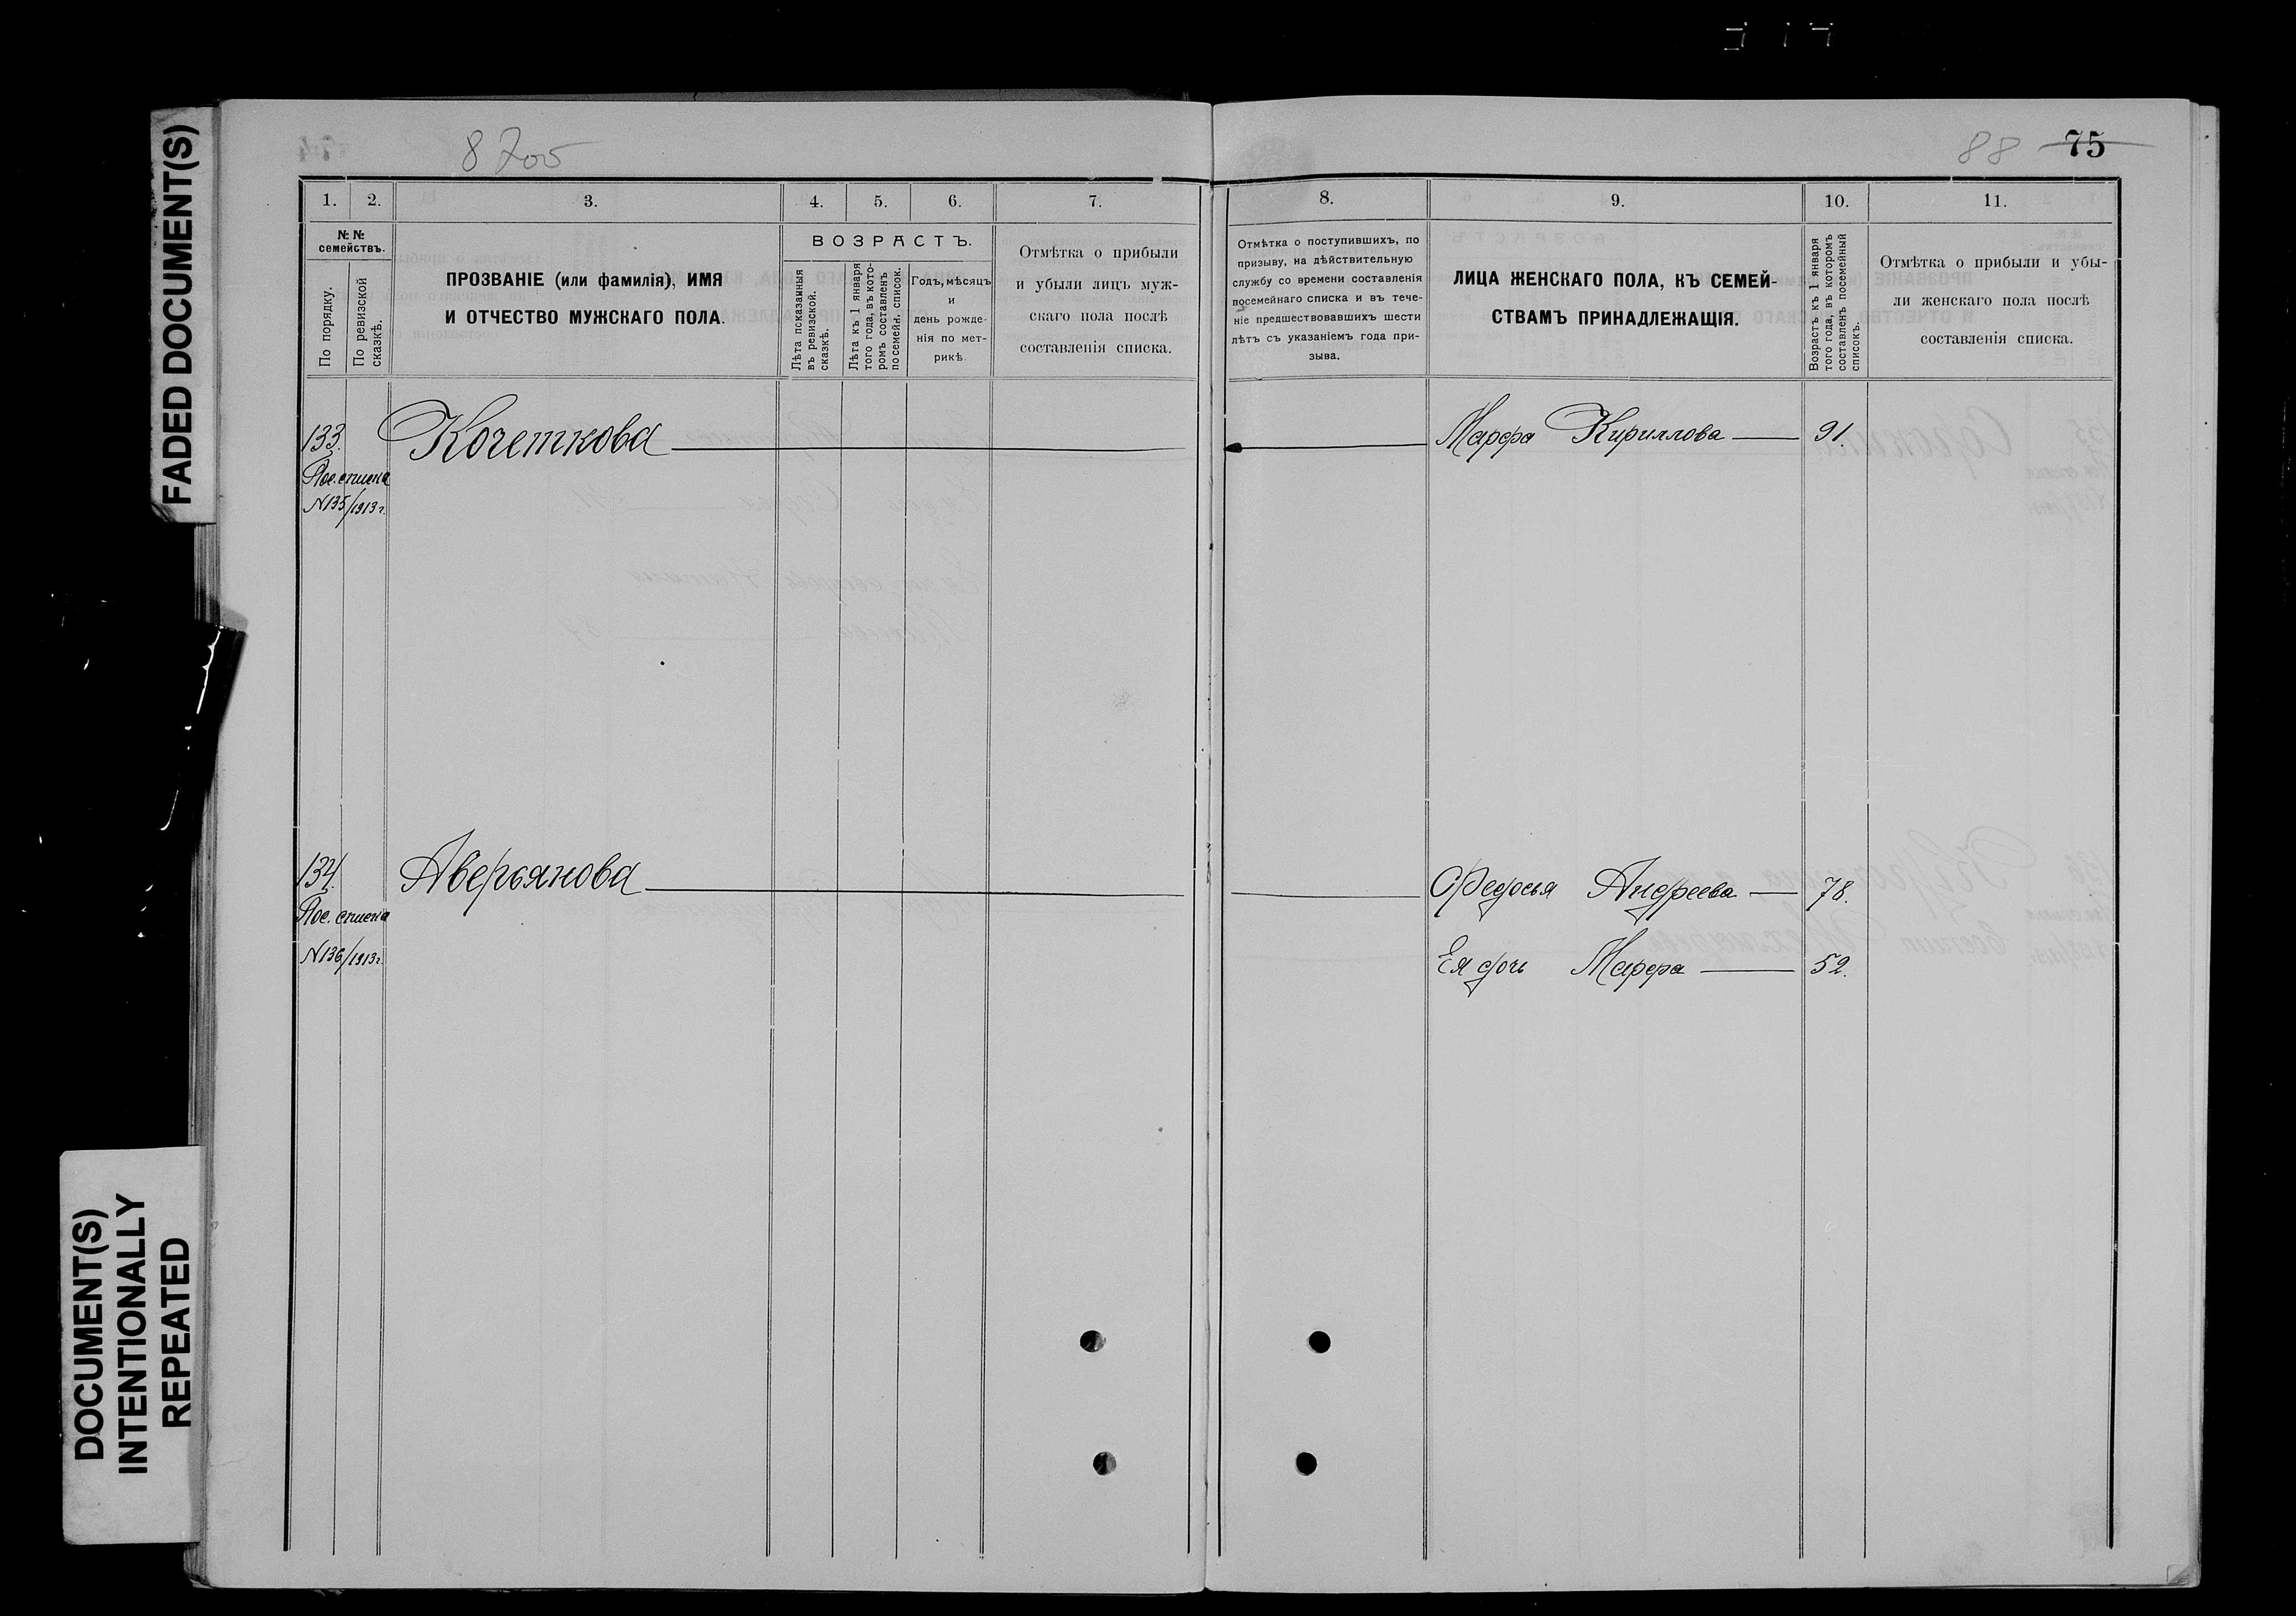 FADED DOCUMENT(S)
DOCUMENT(S)
INTENTIONALLY
REPEATED
88 75
1. 2. 3. 4. 5. 6. 7.
№ №
семействъ.
По порядку.
По ревизской
сказкѣ.
ПРОЗВАНІЕ (или фамилія), ИМЯ
И ОТЧЕСТВО МУЖСКАГО ПОЛА.
ВОЗРАСТЪ.
Лѣта показанныя
въ ревизской.
сказкѣ.
Лѣта къ 1 января
того года, въ кото-
ромъ составленъ
посемейн. список.
Годъ, мѣсяцъ
и
день рожде-
нія по мет-
рикѣ.
Отмѣтка о прибыли
и убыли лицъ муж-
скаго пола послѣ
составленія списка.
133.
Пос. списка
N135/1913г.
Кочеткова
134.
Пос. списка
N136/1913г.
Аверьянова
8. 9. 10. 11.
Отмѣтка о поступившихъ, по
призыву, на дѣйствительную
службу со времени составленія
посемейнаго списка и въ тече-
ніе предшествовавшихъ шести
лѣтъ съ указаніемъ года при-
зыва.
ЛИЦА ЖЕНСКАГО ПОЛА, КЪ СЕМЕЙ-
СТВАМЪ ПРИНАДЛЕЖАЩІЯ.
Возрастъ къ 1 января
того года, въ которомъ
составленъ посемейный
списокъ.
Отмѣтка о прибыли и убы-
ли женскаго пола послѣ
составленія списка.
Марфа Кириллова 91.
Федосья Андреева 78.
Ея дочь Марфа 52.